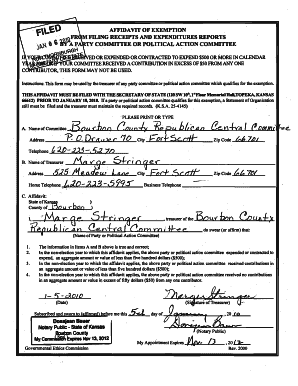 FILED
JAN 0 6 2010
AFFIDAVIT OF EXEMPTION
FROM FILING RECEIPTS AND EXPENDITURES REPORTS
BY A PARTY COMMITTEE OR POLITICAL ACTION COMMITTEE
RECEIVED OR EXPENDED OR CONTRACTED TO EXPEND $500 OR MORE IN CALENDAR
COMMITTEE RECEIVED A CONTRIBUTION IN EXCESS OF $50 FROM ANY ONE
CONTRIBUTOR, THIS FORM MAY NOT BE USED.
Instructions: This form may be used by the treasurer of any party committee or political action committee which qualifies for the exemption.
THIS AFFIDAVIT MUST BE FILED WITH THE SECRETARY OF STATE (120 SW 10th, 1st Floor Memorial Hall, TOPEKA, KANSAS
66612) PRIOR TO JANUARY 10, 2010. If a party or political committee qualifies for this exemption, a Statement of Organization
still must be filed and the treasurer must maintain the required records. (K.S.A. 25-4145)
PLEASE PRINT OR TYPE
A. Name of Committee Bourbon County Republican Central Committee
Address P.O. Drawer 70 City Fort Scott Zip Code 66701
Telephone 620-223-5270
B. Name of Treasurer Marge Stringer
Address 525 Meadow Lane City Fort Scott Zip Code 66701
Home Telephone 620-223-5995 Business Telephone
C. Affidavit:
State of Kansas )
County of Bourbon )
I, Marge Stringer treasurer of the Bourbon County
Republican Central Committee do swear (or affirm) that
(Name of Party or Political Action Committee)
1. The information in Items A and B above is true and correct;
2. In the non-election year to which this affidavit applies, the above party or political action committee expended or contracted to
expend, an aggregate amount or value of less than five hundred dollars ($500);
3. In the non-election year to which this affidavit applies, the above party or political action committee received contributions in
an aggregate amount or value of less than five hundred dollars ($500);
4. In the non-election year to which this affidavit applies, the above party or political action committee received no contribution
in an aggregate amount or value in excess of fifty dollars ($50) from any one contributor.
1-5-2010 Marge Stringer
(Date) (Signature of Treasurer)
Subscribed and sworn to (affirmed) before me this 5th day of January, 2010
Donejean Bauer
Notary Public - State of Kansas
Bourbon County
My Commission Expires Nov 13, 2012
Donejean Bauer
(Notary Public)
My Appointment Expires Nov 13 2012
Governmental Ethics Commission Rev. 2000